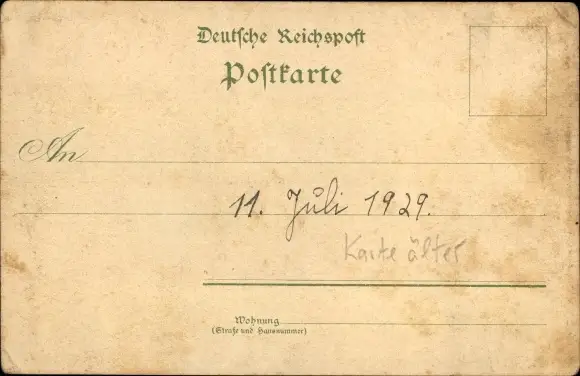 Deutsche Reichspost
Postkarte
An
11. Juli 1929.
Karte älter
Wohnung
(Straße und Hausnummer)